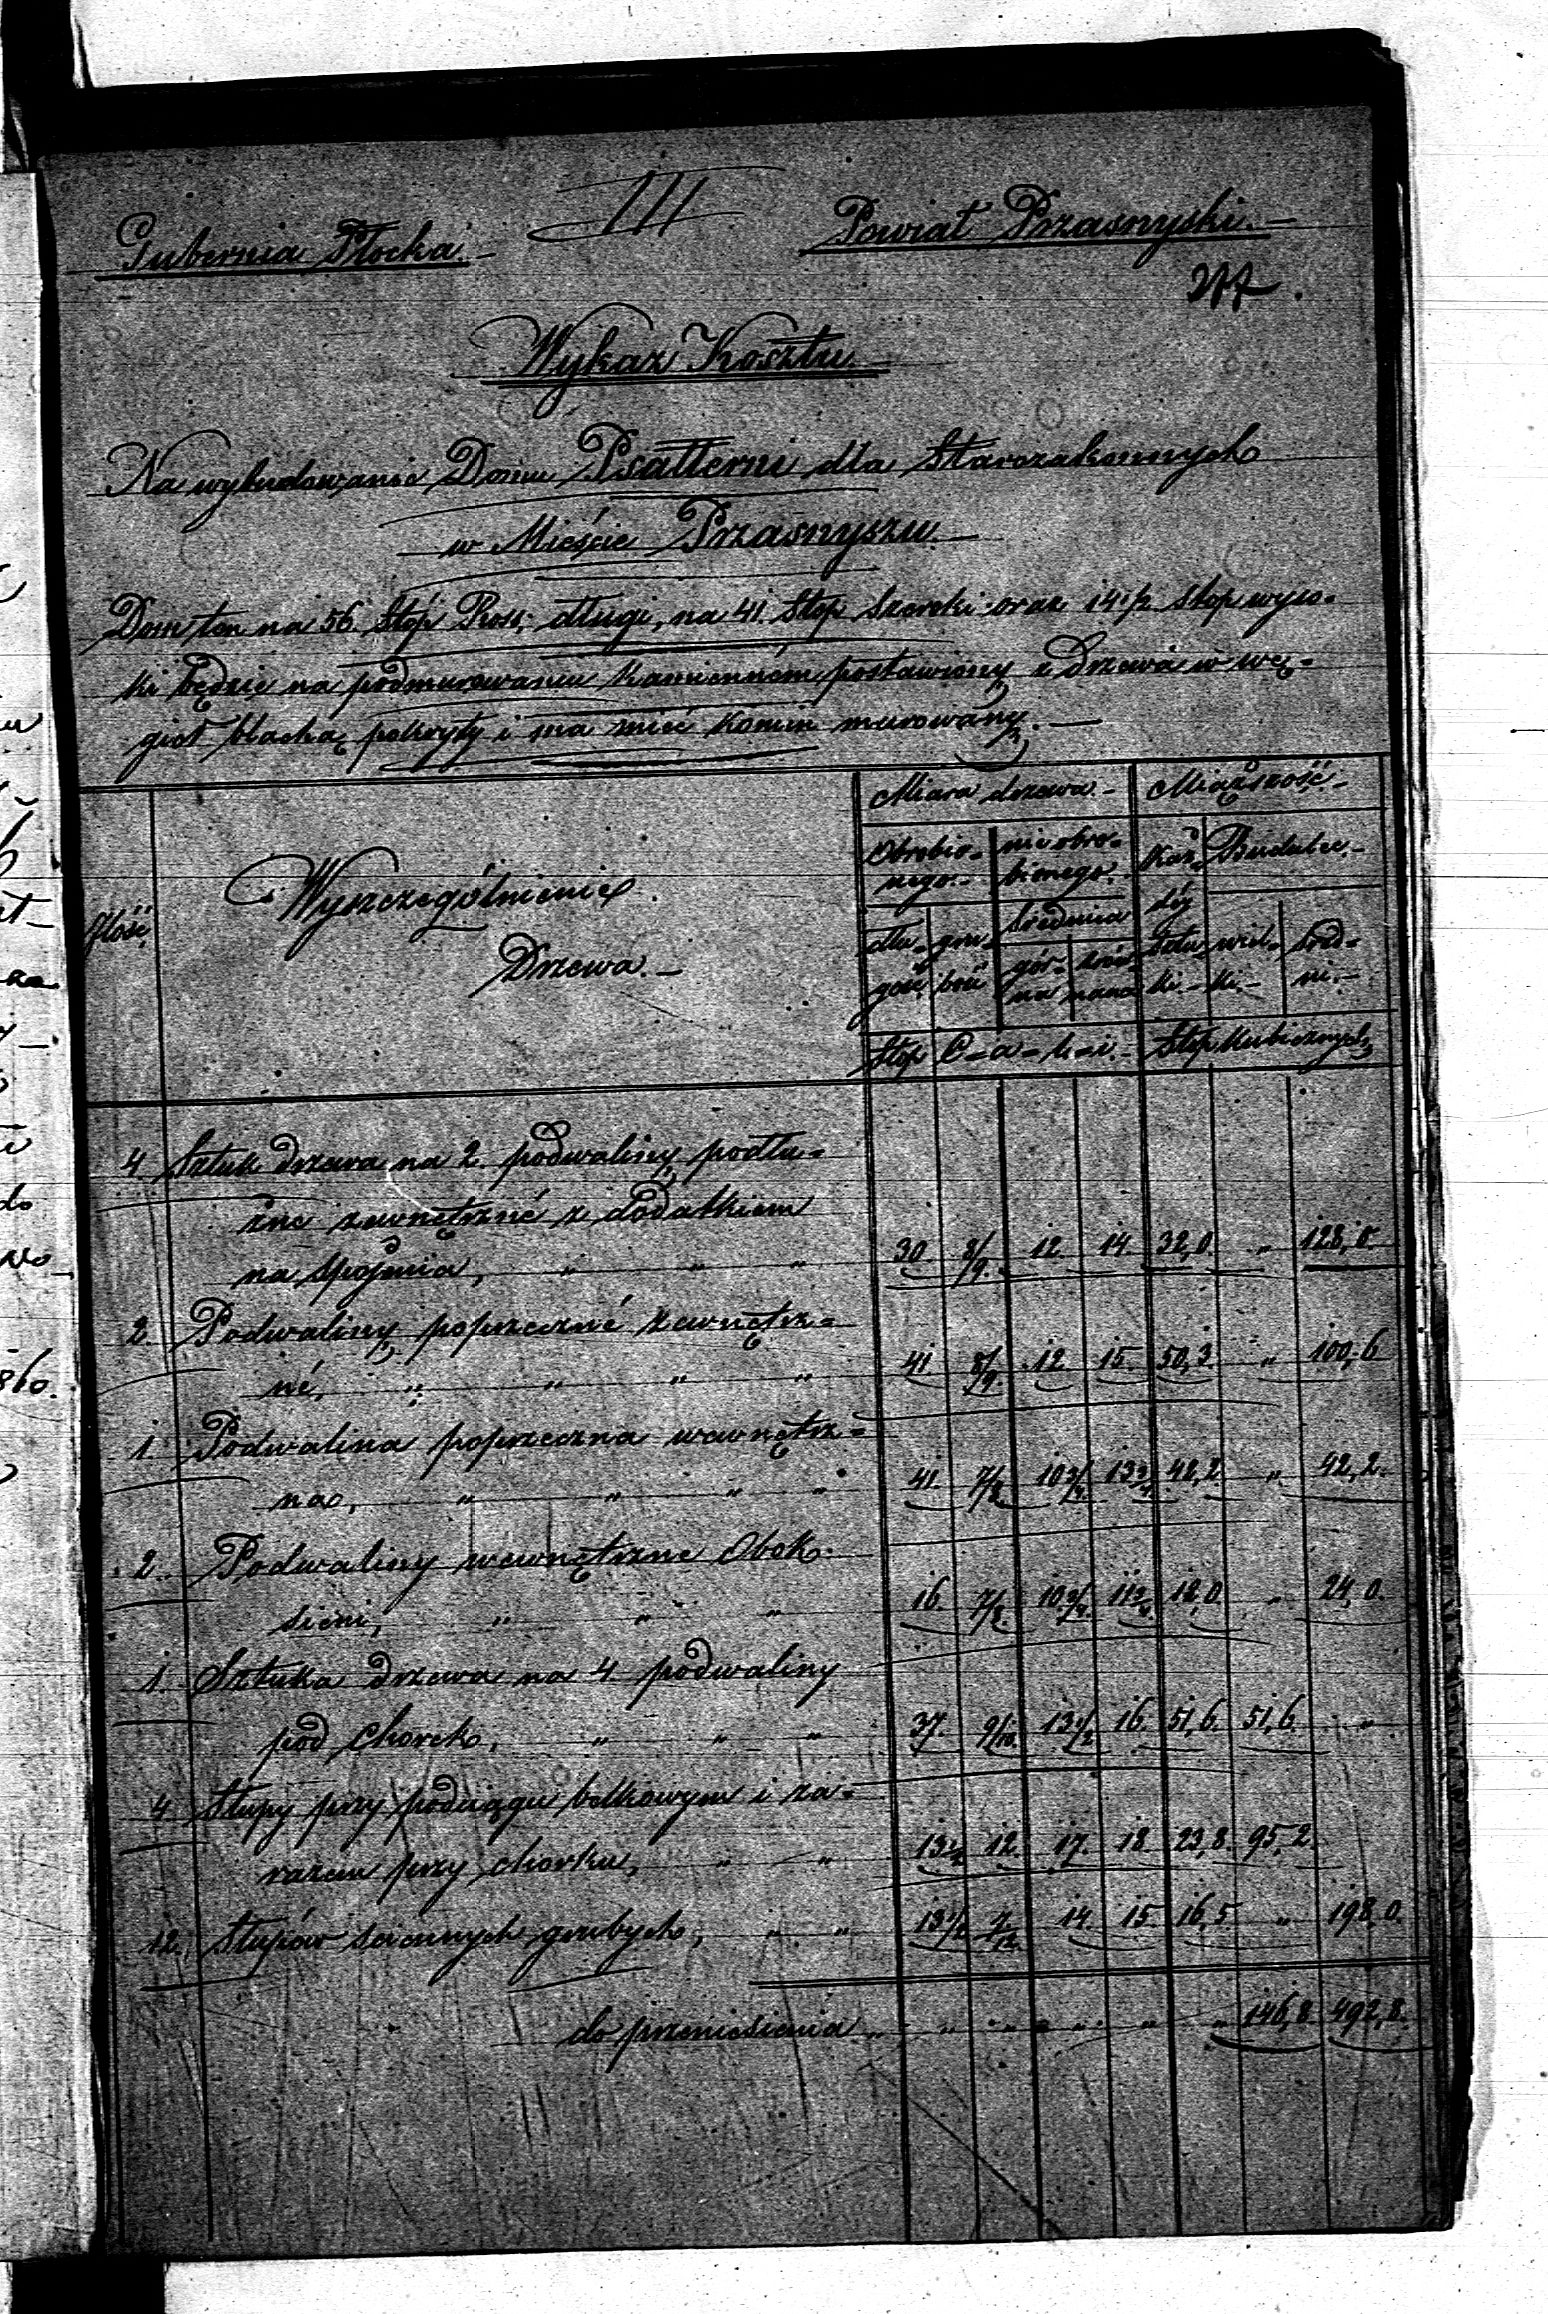 III
Gubernia Płocka. Powiat Przasnyski.
277.
Wykaz Kosztu.
Na wybudowanie Domu Psałterni dla Starozakonnych
w Mieście Przasnyszu.
Dom ten na 56 Stóp Ross: długi, na 41. Stóp szeroki oraz 14 1/2 stóp wyso-
ki będzie na podmurowaniu kamiennem postawiony z drzewa w wę-
gieł blachą pokryty i ma mieć komin murowany.
Miara drzewa. Miąższość
Obrobio- nieobro- Każ- Budulec.
nego. bionego. déj
Ilość Wyszczególnienie średnica
Drzewa. dłu- gru- gór- sztu- wiel- śred-
gość bość na ki. ki. ni.
Stóp C-a-l-i. Stóp Kubicznych
4 Sztuk drzewa na 2. podwaliny podłu-
żne zewnętrzné z dodatkiem
na spojenia, " " " 30 8/9. 12 14 32,0. " 128,0.
2. Podwaliny poprzeczné zewnętrz-
né, " " " " 41. 8/9 12 15. 50,3 " 100,6
1. Podwalina poprzeczna wewnętrz-
na, " " " " 41. 7/8 10 3/4 13 3/4 42,2 " 42,2.
2. Podwaliny wewnętrzne obok
sieni, " " " 16. 7/8. 10 3/4 11 3/4 12,0 " 24,0.
1. Sztuka drzewa na 4 podwaliny
pod chorek, " " " 37. 9/10. 13 1/2 16. 51,6. 51,6. "
4 Słupy przy podciągu belkowym i za-
razem przy chorku, " " 13 1/2 12. 17. 18. 23,8. 95,2
12. Słupów sciennych grubych, " " 13 1/2 7/12. 14. 15 16,5 " 198,0.
do przeniesienia " " " " " " 146,8 492,8.